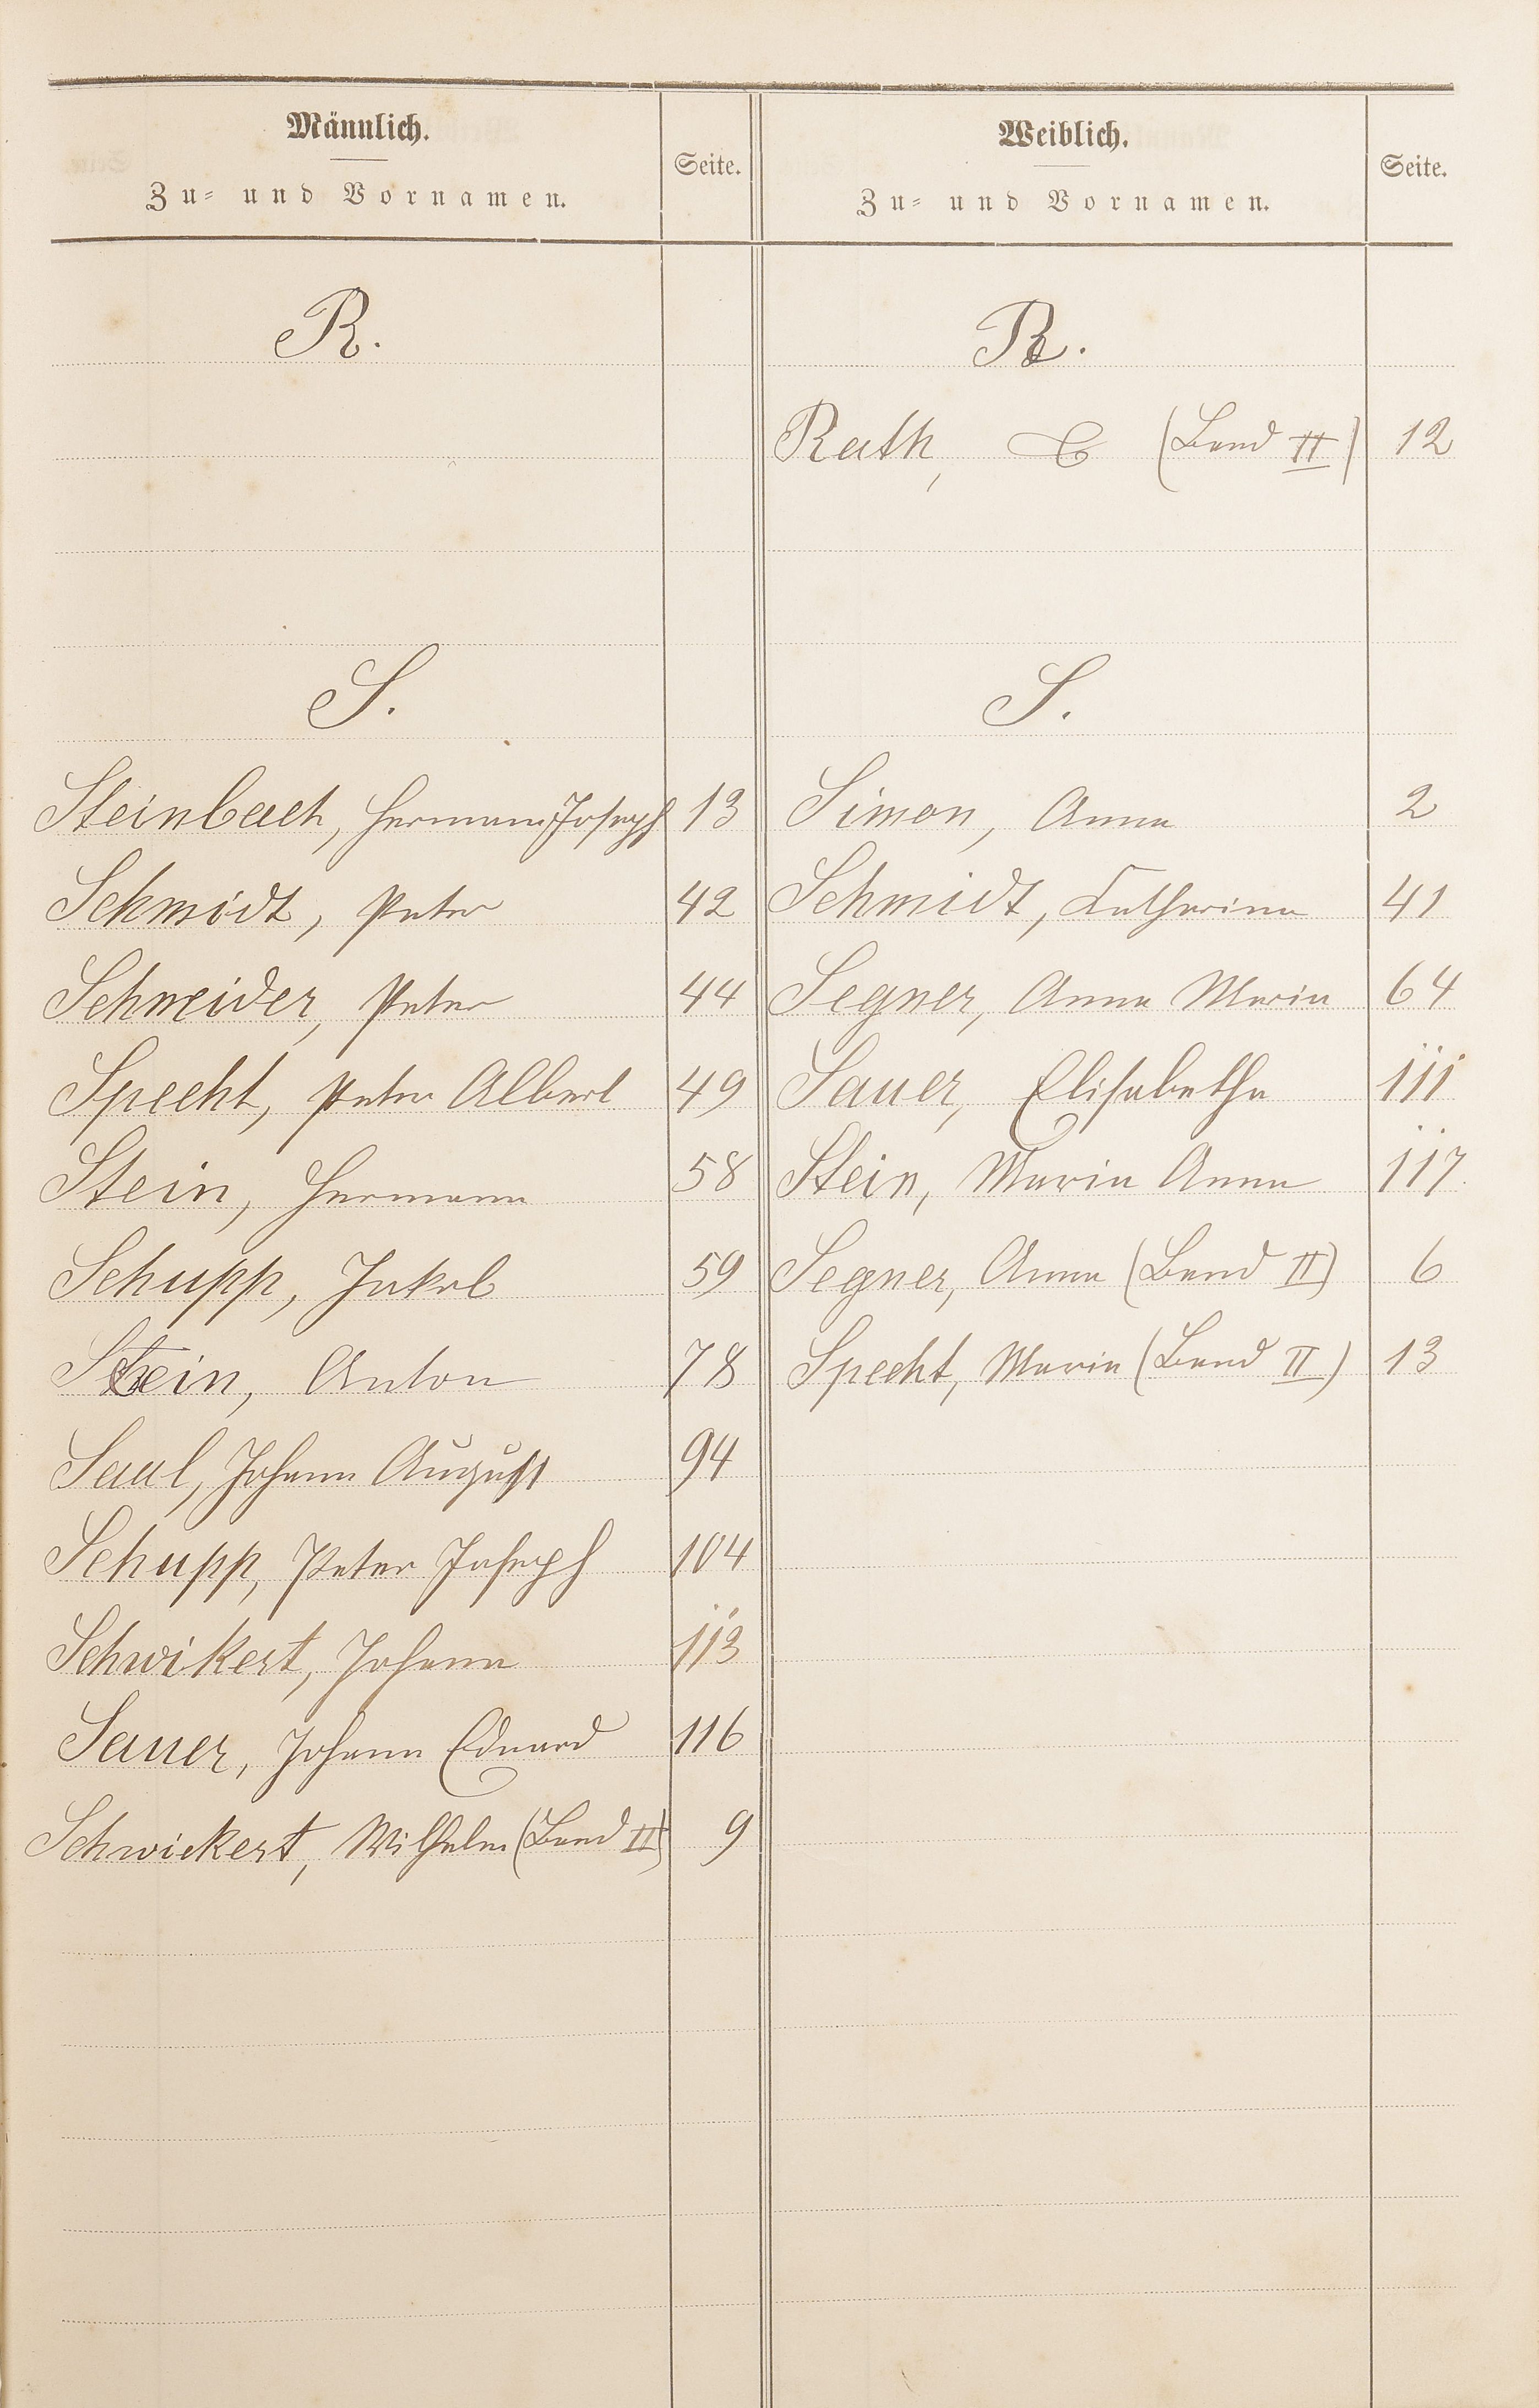 Männlich.
Zu- und Vornamen.
Seite.
R.
S.
Steinbach, Hermann Joseph 13
Schmidt, Peter 42
Schneider, Peter 44
Specht, Peter Albert 49
Stein, Hermann 58
Schupp, Jakob 59
Stein, Anton 78
Saul, Johann August 94
Schupp, Peter Joseph 104
Schwikert, Johann 113
Sauer, Johann Eduard 116
Schwickert, Wilhelm (Band II) 9
Weiblich.
Zu- und Vornamen.
Seite.
R.
Rath, (Band II) 12
S.
Simon, Anna 2
Schmidt, Katharina 41
Segner, Anna Maria 64
Sauer, Elisabetha 111
Stein, Maria Anna 117.
Segner, Anna (Band II) 6
Specht, Maria (Band II) 13